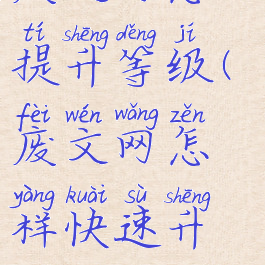 tí shēng děng jí
提升等级(
fèi wén wǎng zěn
废文网怎
yàng kuài sù shēng
样快速升